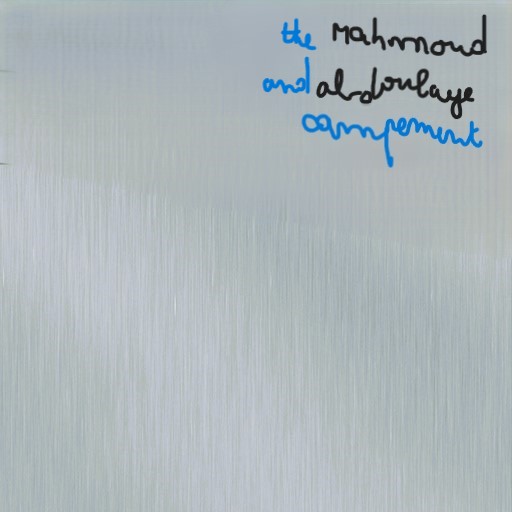 the Mahmoud
and abdoulaye
campement